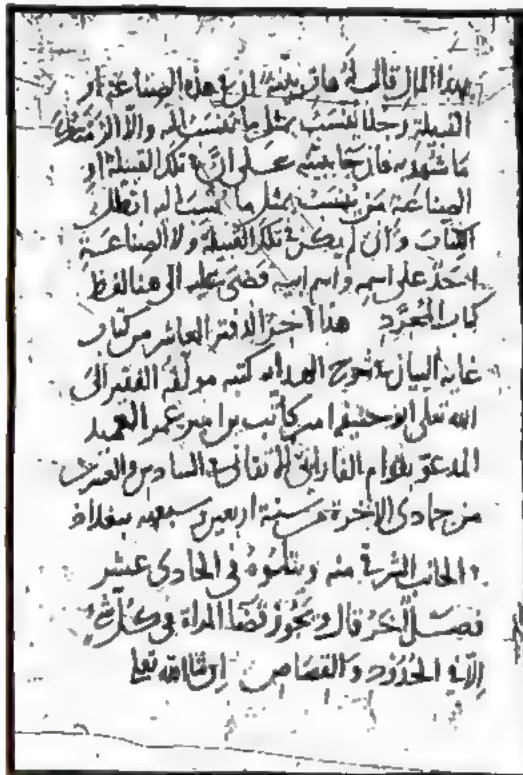 بهذا المال قال له هات بينة ان في هذه الصناعة او
القبيلة رجلا ينسب بمثل ما تنسب اليه والا الزمتك
ما شهد به فان جا ببينة على ان في تلك القبيلة او
الصناعة من ينسب بمثل ما ينسب اليه ابطل
الكتاب وان لم يكن في تلك القبيلة ولا الصناعة
احد على اسمه واسم ابيه قضى عليه الى هنا لفظ
كتاب المجرد هذا آخر الدفتر العاشر من كتاب
غاية البيان في شرح الهداية كتبه مولفه الفقير الى
الله تعالى ابو حنيفة امير كاتب بن امير عمر العميد
المدعو بقوام الفارابي الاتقاني في السادس والعشرين
من جمادى الاخرة من سنة اربعين وسبعمية ببغداد
في الجانب الشرقي منه ويتلوه في الحادي عشر
فصل آخر قال ويجوز قضا المراة في كل شي
الا في الحدود والقصاص ان شا الله تعالى